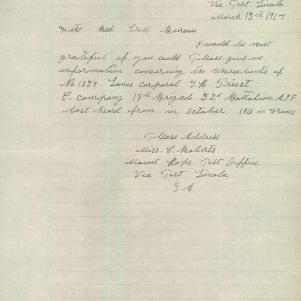 Via Port Lincoln
March 15th 1917
To the Red Cross Bureau
I would be most
grateful if you could Please give me
information concerning the whereabouts of
No 1839 Lance Corporal J.C. Priest
C. Company 13th Brigade 52d Battalion A.I.F
last heard from in October 1916 in France
Please Address
Miss. C. Roberts
Mount Hope Post Office
Via Port Lincoln
S A